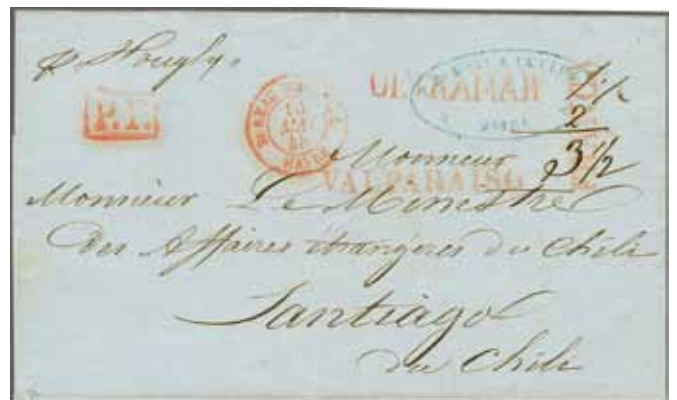 p. Hougly.
P.P.
ULTRAMAR
HAVRE
1 1/2
2
3 1/2
VALPARAISO
Monsieur
Monsieur Le Ministre
Des Affaires étrangeres du Chili
Santiago
du Chili